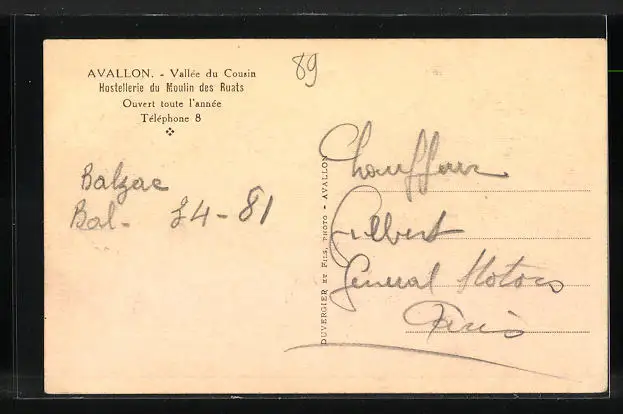 AVALLON. - Vallée du Cousin
Hostellerie du Moulin des Ruats
Ouvert toute l'année
Téléphone 8
89
Balzac
Bal- 74-81
DUVERGIER ET FILS, PHOTO - AVALLON
Chauffeur
Gilbert
General Motors
Paris